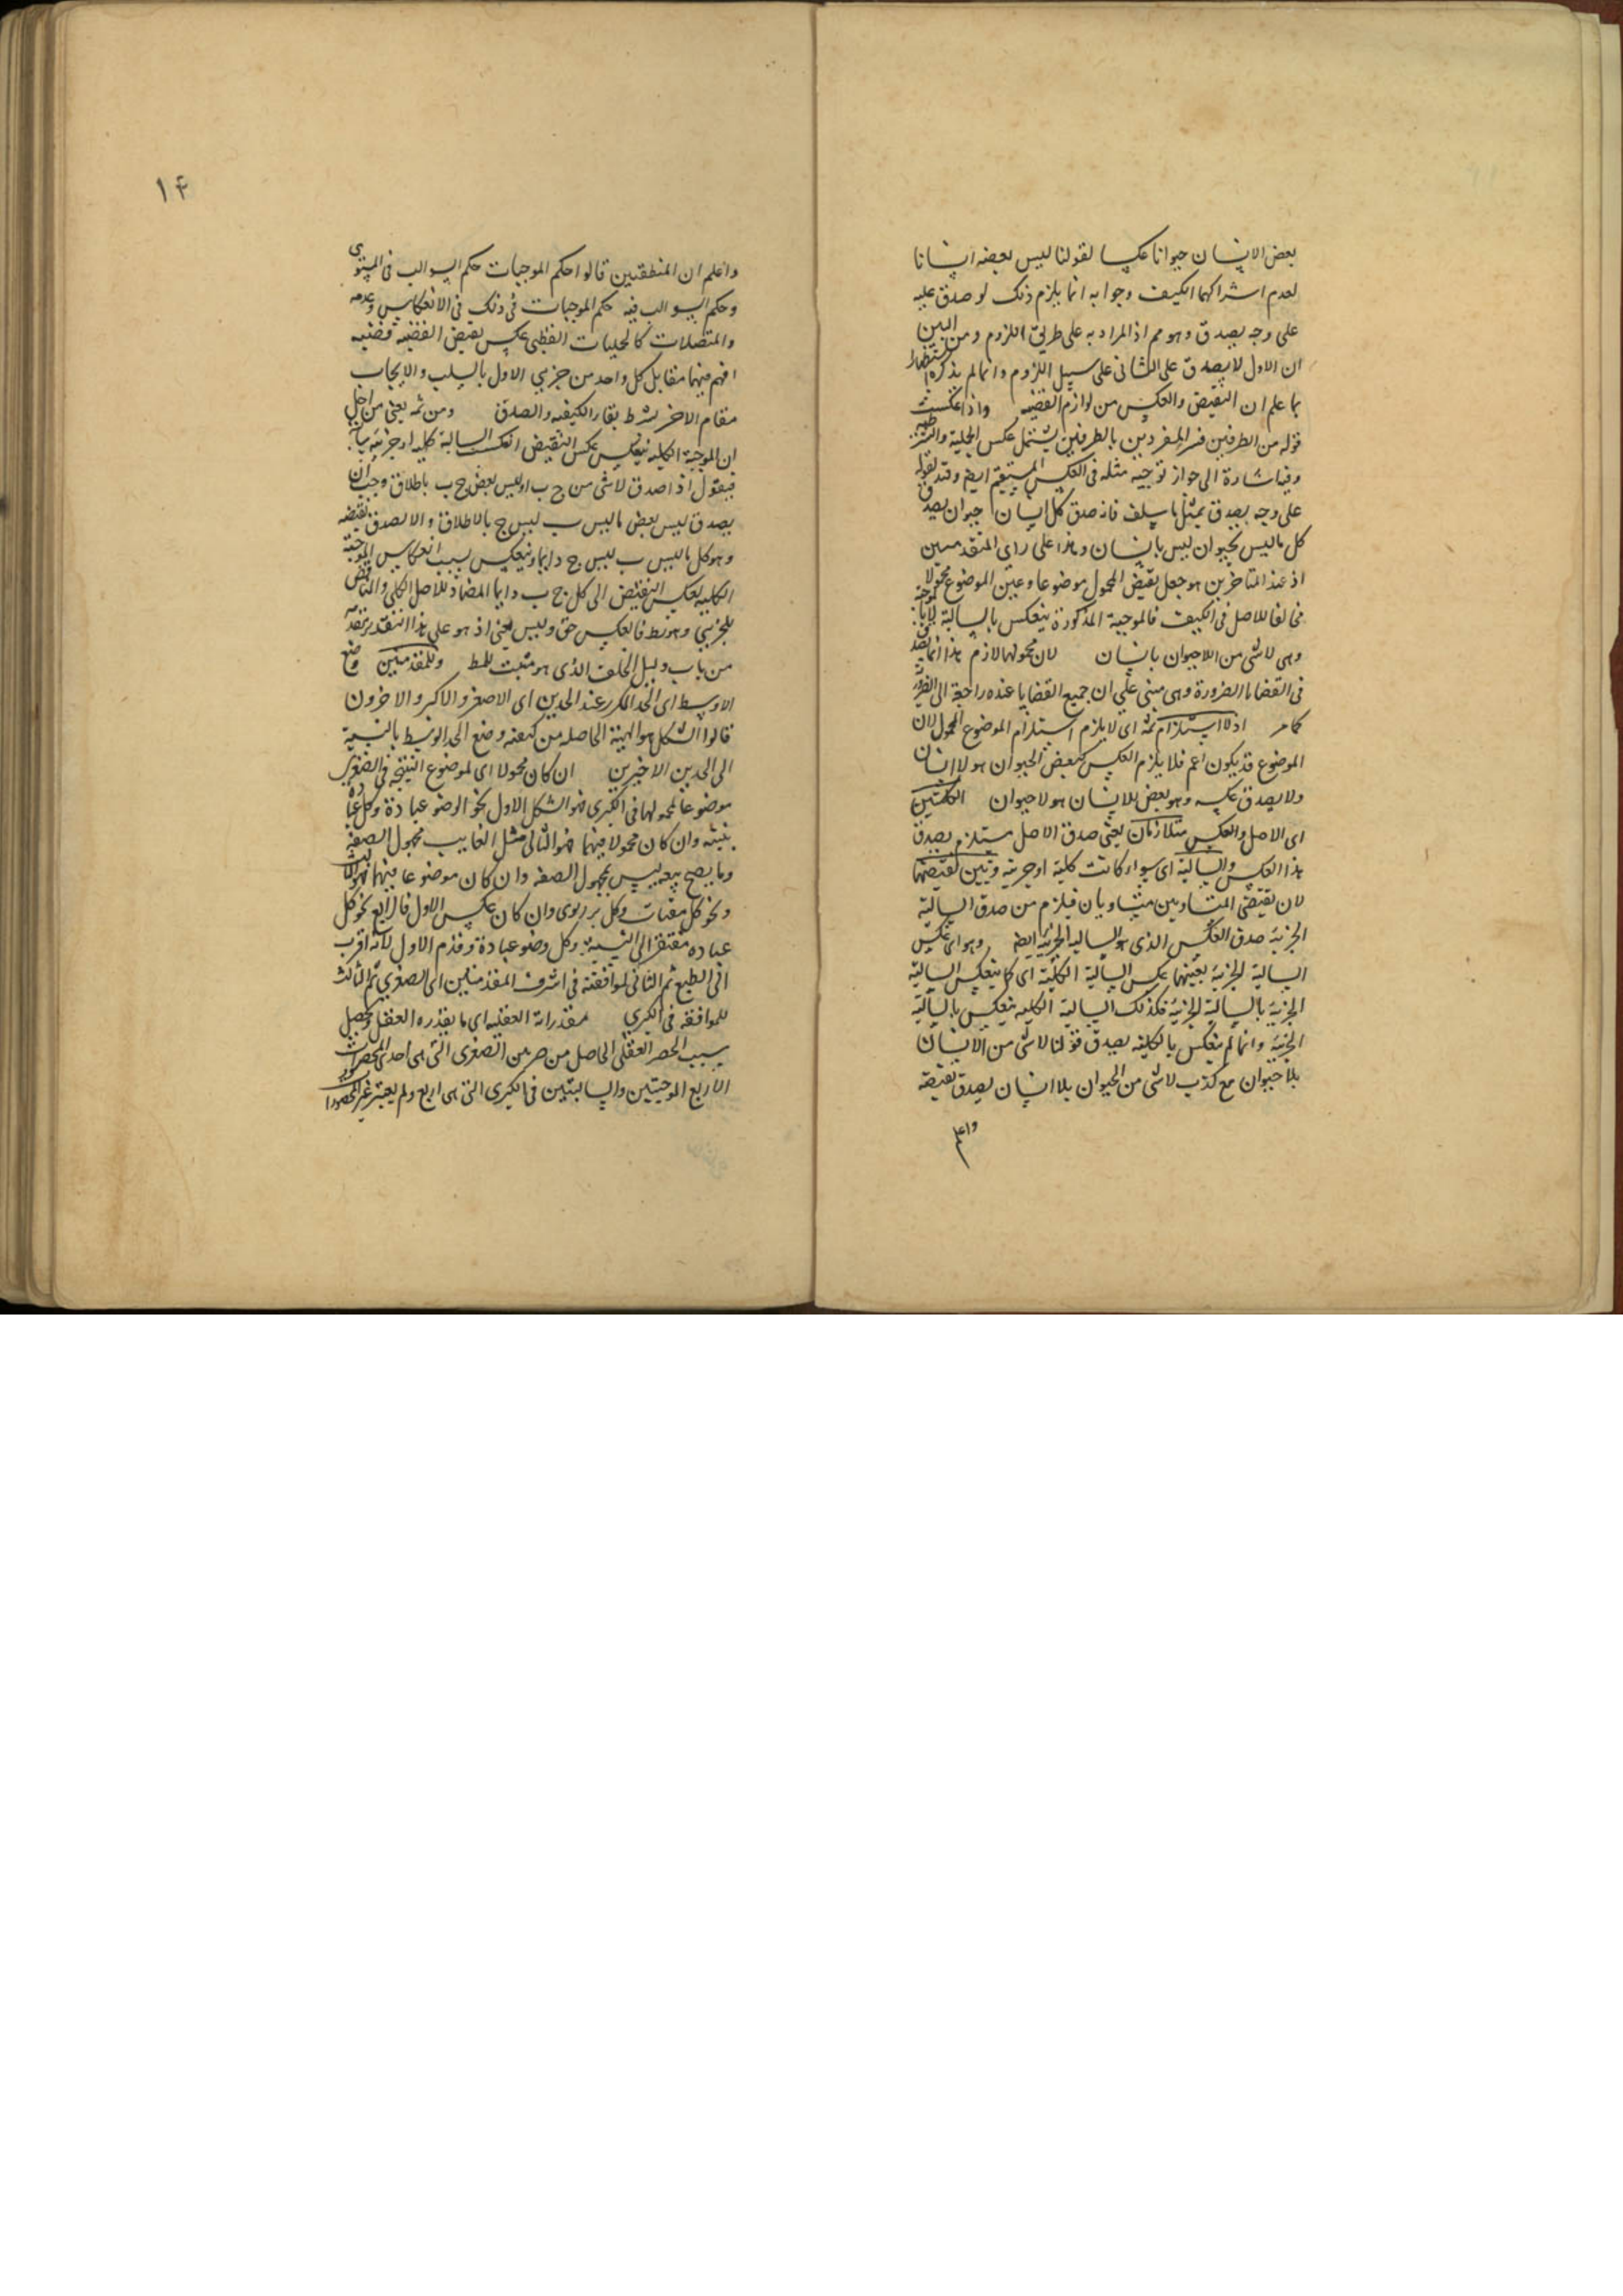 بعض الانسان حيوانا عكسا لقولنا ليس بعضه انسانا
لعدم اشتراكهما الكيف وجوابه انما يلزم ذلك لو صدق عليه
على وجه يصدق وهو مم اذ المراد به على طريق اللزوم ومن البين
ان الاول لا يصدق على الثانى على سبيل اللزوم وانما لم يذكره استظهارا
بما علم ان النقيض والعكس من لوازم القضيه واذا عكست
قوله من الطرفين فسر المفردين بالطرفين يشتمل عكس الحملية والشرطيه
وفيه اشارة الى جواز توجيه مثله فى العكس المستقيم ايضا وقيد بقوله
على وجه يصدق يمثل ما سلف فانه صدق كل انسان حيوان يصدق
كل ما ليس بحيوان ليس بانسان وهذا على راى المتقدمين
اذ عند المتاخرين هو جعل نقيض المحمول موضوعا وعين الموضوع محمولا
مخالفا للاصل فى الكيف فالموجبة المذكورة ينعكس بالسالبة
وهى لا شى من اللاحيوان بانسان لان محمولها لازم هذا انما
فى القضايا الضرورة وهى مبنى على ان جميع القضايا عنده راجعة الى الضرورية
كما مر اذ لا استلزام ثمه اى لا يلزم استلزام الموضوع المحمول لان
الموضوع قد يكون اعم فلا يلزم العكس كبعض الحيوان هو لا انسان
ولا يصدق عكسه وهو بعض الانسان هو لا حيوان الكليتين
اى الاصل والعكس متلازمان يعنى صدق الاصل مستلزم بصدق
هذا العكس والسالبة اى سواء كانت كلية او جزئية وتبين نقيضهما
لان نقيضى المتساويين متساويان فيلزم من صدق السالبة
الجزئية صدق العكس الذى هو السالبة الجزئية ايضا وهو اى عكس
السالبة الجزئية بعينهما عكس السالبة الكلية اى كما ينعكس السالبة
الجزئية بالسالبة الجزئية فكذلك السالبة الكليه ينعكس بالسالبة
الجزئية وانما لم ينعكس بالكليه يصدق قولنا لا شى من الانسان
بلا حيوان مع كذب لا شى من الحيوان بلا انسان يصدق نقيضه
واعلم
١٤
واعلم ان المنطقيين قالوا حكم الموجبات حكم السوالب فى المستوى
وحكم السوالب فيه حكم الموجبات فى ذلك فى الانعكاس وعدمه
والمتصلات كالحمليات القطبى عكس نقيض القضيه قضيه
افهم فيهما مقابل كل واحد من جزئى الاول بالسلب والايجاب
مقام الاخر بشرط بقاء الكيفيه والصدق ومن ثمه يعنى من اجل
ان الموجبة الكليه ينعكس بعكس النقيض انعكست السالبة كليه او جزئيه
فيقول اذا صدق لا شى من ج ب او ليس بعض ج ب باطلاق وجب ان
يصدق ليس بعض ما ليس ب ليس ج بالاطلاق والا لصدق نقيضه
وهو كل ما ليس ب ليس ج دايما وينعكس بسبب انعكاس الموجبة
الكليه بعكس النقيض الى كل ج ب دايما المضاد للاصل الكلى والمناقض
للجزئى وهو بط فالعكس حق وليس يعنى اذ هو على هذا التقدير
من باب دليل الخلف الذى هو مثبت للمط وللمقدمتين وضع
الاوسط اى الحد المكرر عند الحدين اى الاصغر والاكبر والاخرون
قالوا الشكل هو الهيئة الحاصله من كيفيه وضع الحد الوسط بالنسبة
الى الحدين الاخيرين ان كان محمولا اى لموضوع النتيجة فى الصغرى
موضوعا لمحمولها فى الكبرى فهو الشكل الاول نحو الوضو عبادة وكل عبادة
بنيته وان كان محمولا فيهما فهو الثانى مثل الغايب مجهول الصفه
وما يصح بيعه ليس بمجهول الصفه وان كان موضوعا فيهما فهو الثالث
ونحو كل مقتات وكل بر ربوى وان كان عكس الاول فالرابع نحو كل
عباده مفتقر الى النية وكل وضو عبادة وقدم الاول لانه اقرب
الى الطبع ثم الثانى لموافقته فى اشرف المقدمتين اى الصغرى ثم الثالث
للموافقه فى الكبرى مقدراته العقليه اى ما يقدره العقل ويحصل
بسبب الحصر العقلى الحاصل من ضرب الصغرى التى هى احدى المحصورات
الاربع الموجبتين والسالبتين فى الكبرى التى هى اربع ولم يعتبر غير المحصورات